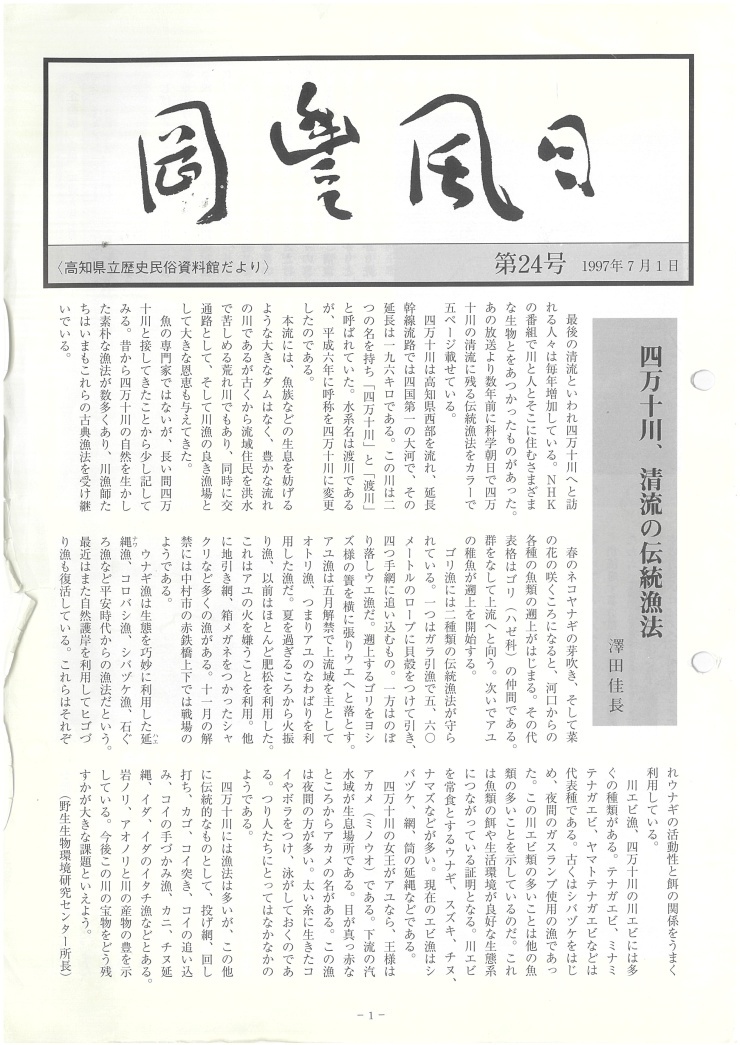 岡豊風日
〈高知県立歴史民俗資料館だより〉
第24号 1997年7月1日
四万十川、清流の伝統漁法
澤田佳長
最後の清流といわれ四万十川へと訪
れる人々は毎年増加している。NHK
の番組で川と人とそこに住むさまざま
な生物とをあつかったものがあった。
あの放送より数年前に科学朝日で四万
十川の清流に残る伝統漁法をカラーで
五ページ載せている。
四万十川は高知県西部を流れ、延長
幹線流路では四国第一の大河で、その
延長は一九六キロである。この川は二
つの名を持ち「四万十川」と「渡川」
と呼ばれていた。水系名は渡川である
が、平成六年に呼称を四万十川に変更
したのである。
本流には、魚族などの生息を妨げる
ような大きなダムはなく、豊かな流れ
の川であるが古くから流域住民を洪水
で苦しめる荒れ川でもあり、同時に交
通路として、そして川漁の良き漁場と
して大きな恩恵も与えてきた。
魚の専門家ではないが、長い間四万
十川と接してきたことから少し記して
みる。昔から四万十川の自然を生かし
た素朴な漁法が数多くあり、川漁師た
ちはいまもこれらの古典漁法を受け継
いでいる。
春のネコヤナギの芽吹き、そして菜
の花の咲くころになると、河口からの
各種の魚類の遡上がはじまる。その代
表格はゴリ（ハゼ科）の仲間である。
群をなして上流へと向う。次いでアユ
の稚魚が遡上を開始する。
ゴリ漁には二種類の伝統漁法が守ら
れている。一つはガラ引漁で五、六〇
メートルのロープに貝殻をつけて引き、
四つ手網に追い込むもの。一方はのぼ
り落しウエ漁だ。遡上するゴリをヨシ
ズ様の簀を横に張りウエへと落とす。
アユ漁は五月解禁で上流域を主として
オトリ漁、つまりアユのなわばりを利
用した漁だ。夏を過ぎるころから火振
り漁、以前はほとんど肥松を利用した。
これはアユの火を嫌うことを利用。他
に地引き網、箱メガネをつかったシャ
クリなど多くの漁がある。十一月の解
禁には中村市の赤鉄橋上下では戦場の
ようである。
ウナギ漁は生態を巧妙に利用した延
縄漁、コロバシ漁、シバヅケ漁、石ぐ
ろ漁など平安時代からの漁法だという。
最近はまた自然護岸を利用してヒゴづ
り漁も復活している。これらはそれぞ
れウナギの活動性と餌の関係をうまく
利用している。
川エビ漁、四万十川の川エビには多
くの種類がある。テナガエビ、ミナミ
テナガエビ、ヤマトテナガエビなどは
代表種である。古くはシバヅケをはじ
め、夜間のガスランプ使用の漁であっ
た。この川エビ類の多いことは他の魚
類の多いことを示しているのだ。これ
は魚類の餌や生活環境が良好な生態系
につながっている証明となる。川エビ
を常食とするウナギ、スズキ、チヌ、
ナマズなどが多い。現在のエビ漁はシ
バヅケ、網、筒の延縄などである。
四万十川の女王がアユなら、王様は
アカメ（ミノウオ）である。下流の汽
水域が生息場所である。目が真っ赤な
ところからアカメの名がある。この漁
は夜間の方が多い。太い糸に生きたコ
イやボラをつけ、泳がしておくのであ
る。つり人たちにとってはなかなかの
ようである。
四万十川には漁法は多いが、この他
に伝統的なものとして、投げ網、回し
打ち、カゴ、コイ突き、コイの追い込
み、コイの手づかみ漁、カニ、チヌ延
縄、イダ、イダのイタチ漁などとある。
岩ノリ、アオノリと川の産物の豊を示
している。今後この川の宝物をどう残
すかが大きな課題といえよう。
（野生生物環境研究センター所長）
－1－